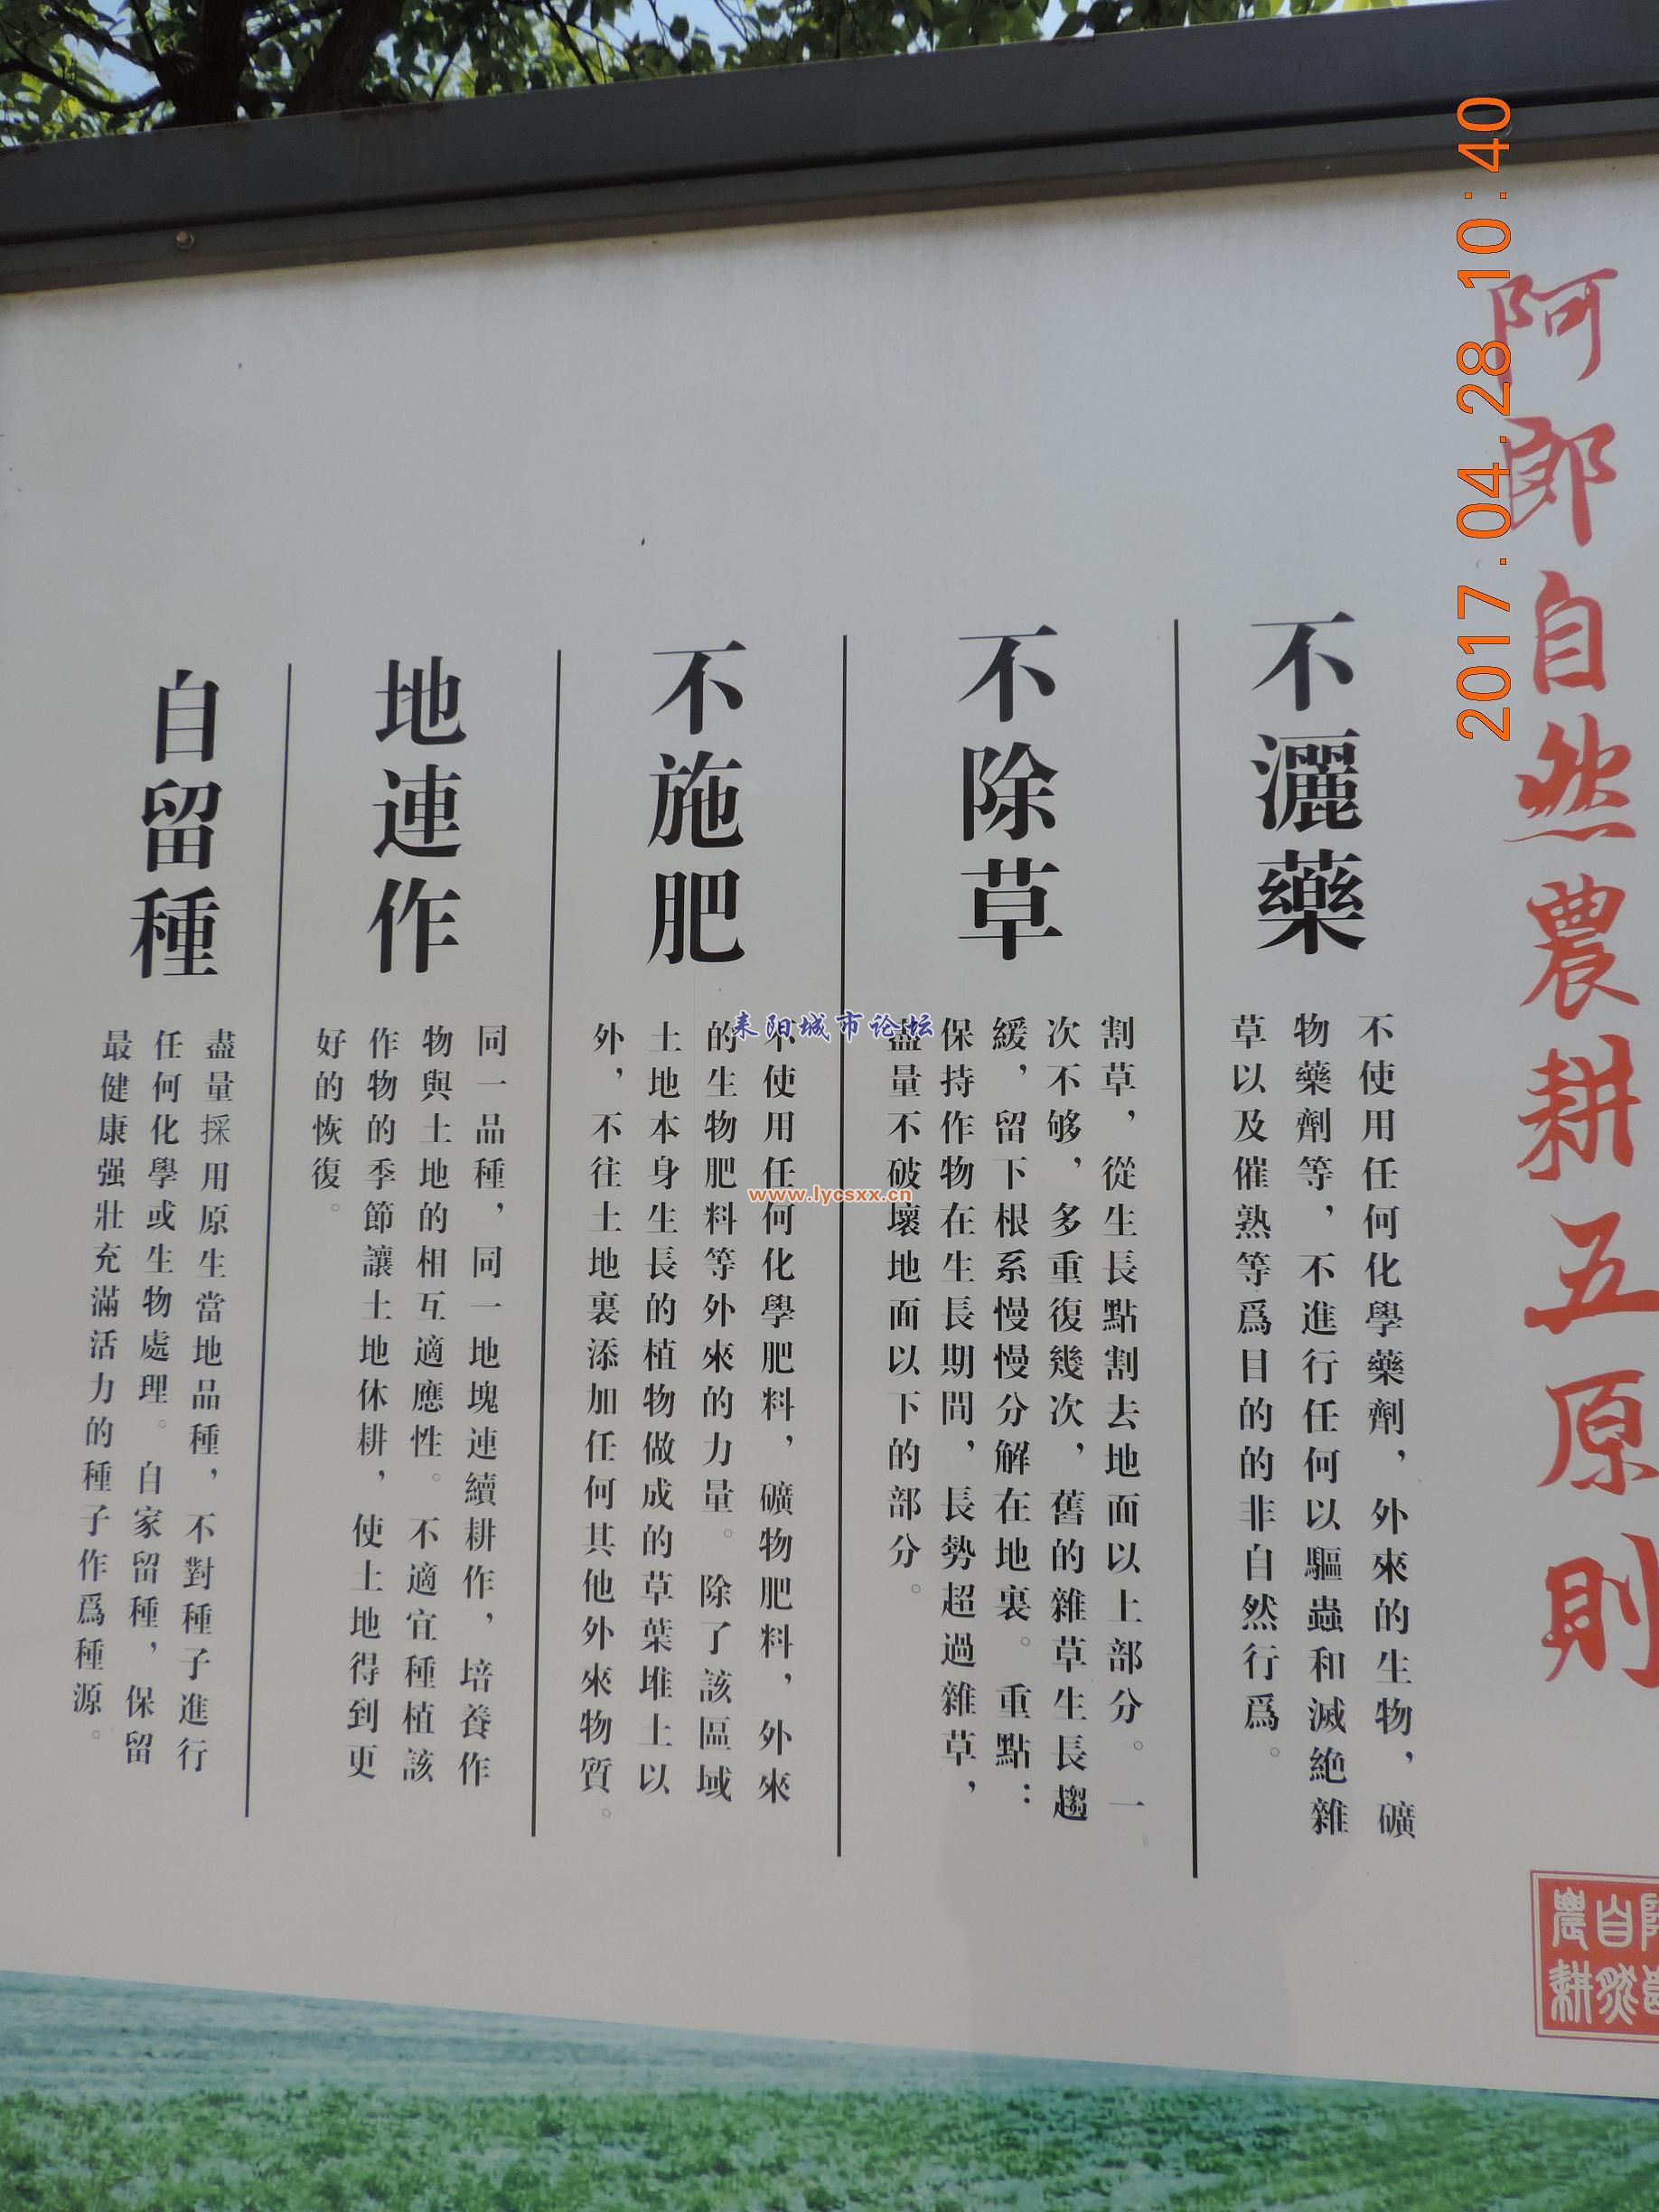 阿郎自然農耕五原則
不灑藥
不使用任何化學藥劑，外來的生物，礦
物藥劑等，不進行任何以驅蟲和滅絶雜
草以及催熟等爲目的的非自然行爲。
不除草
割草，從生長點割去地面以上部分。一
次不够，多重復幾次，舊的雜草生長趨
緩，留下根系慢慢分解在地裏。重點：
保持作物在生長期間，長勢超過雜草，
盡量不破壞地面以下的部分。
不施肥
不使用任何化學肥料，礦物肥料，外來
的生物肥料等外來的力量。除了該區域
土地本身生長的植物做成的草葉堆土以
外，不往土地裏添加任何其他外來物質。
地連作
同一品種，同一地塊連續耕作，培養作
物與土地的相互適應性。不適宜種植該
作物的季節讓土地休耕，使土地得到更
好的恢復。
自留種
盡量採用原生當地品種，不對種子進行
任何化學或生物處理。自家留種，保留
最健康强壯充滿活力的種子作爲種源。
自然
農耕
2017.04.28 10:40
耒阳城市论坛
www.lycsxx.cn